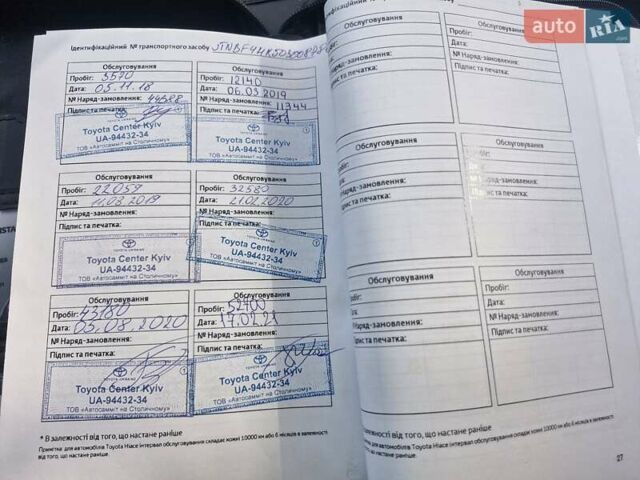 auto RIA
Ідентифікаційний № транспортного засобу
Обслуговування
Пробіг: 3570
Дата: 05.11.18
№ Наряд-замовлення: 44388
Підпис та печатка:
Toyota Center Kyiv
UA-94432-34
ТОВ «Автосамміт на Столичному»
Обслуговування
Пробіг: 12140
Дата: 06.03.2019
№ Наряд-замовлення: 11344
Підпис та печатка:
Toyota Center Kyiv
UA-94432-34
ТОВ «Автосамміт на Столичному»
Обслуговування
Пробіг: 22059
Дата: 11.08.2019
№ Наряд-замовлення:
Підпис та печатка:
TOYOTA UKRAINE
Toyota Center Kyiv
UA-94432-34
ТОВ «Автосамміт на Столичному»
Обслуговування
Пробіг: 32580
Дата: 21.02.2020
№ Наряд-замовлення:
Підпис та печатка:
Toyota Center Kyiv
UA-94432-34
ТОВ «Автосамміт на Столичному»
Обслуговування
Пробіг: 43180
Дата: 05.08.2020
№ Наряд-замовлення:
Підпис та печатка:
Toyota Center Kyiv
UA-94432-34
ТОВ «Автосамміт на Столичному»
Обслуговування
Пробіг: 52400
Дата: 17.02.21
№ Наряд-замовлення:
Підпис та печатка:
Toyota Center Kyiv
UA-94432-34
ТОВ «Автосамміт на Столичному»
* В залежності від того, що настане раніше
Примітка: для автомобілів Toyota Hiace інтервал обслуговування складає кожні 10000 км або 6 місяців в залежності
від того, що настане раніше.
№ транспортного засобу
Обслуговування
№ Наряд-замовлення:
Підпис та печатка:
Дата:
№ Наряд-замовлення:
Підпис та печатка:
Обслуговування
№ Наряд-замовлення:
Підпис та печатка:
Обслуговування
Пробіг:
Дата:
№ Наряд-замовлення:
Підпис та печатка:
Обслуговування
№ Наряд-замовлення:
Підпис та печатка:
Обслуговування
Пробіг:
Дата:
№ Наряд-замовлення:
Підпис та печатка:
від того, що настане раніше
для автомобілів Toyota Hiace інтервал обслуговування складає кожні 10000 км або 6 місяців в залежності
що настане раніше.
27